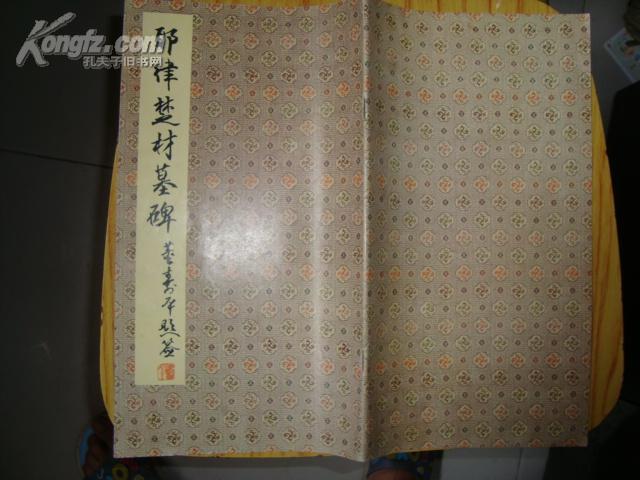 Kongfz.com
孔夫子旧书网
耶律楚材墓碑
董寿平题签